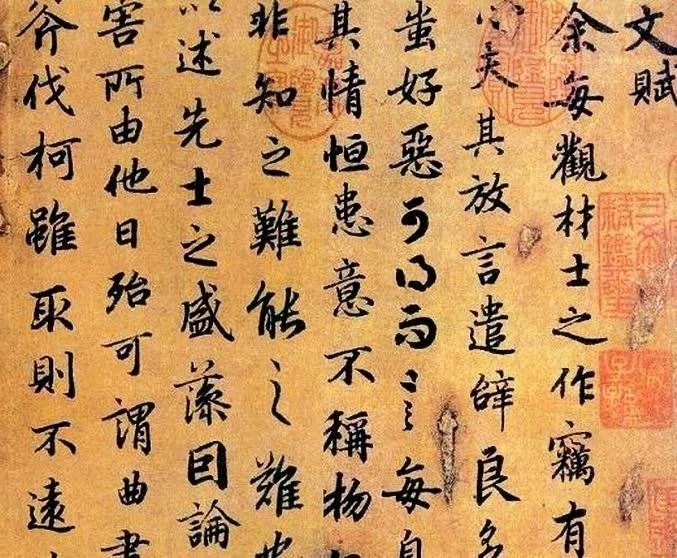 文賦
余每觀材士之作竊有
心夫其放言遣辞良多
蚩好惡可得而言每自
其情恒患意不稱物
非知之難能之難也
以述先士之盛藻因論
害所由他日殆可謂曲盡
斧伐柯雖取則不遠